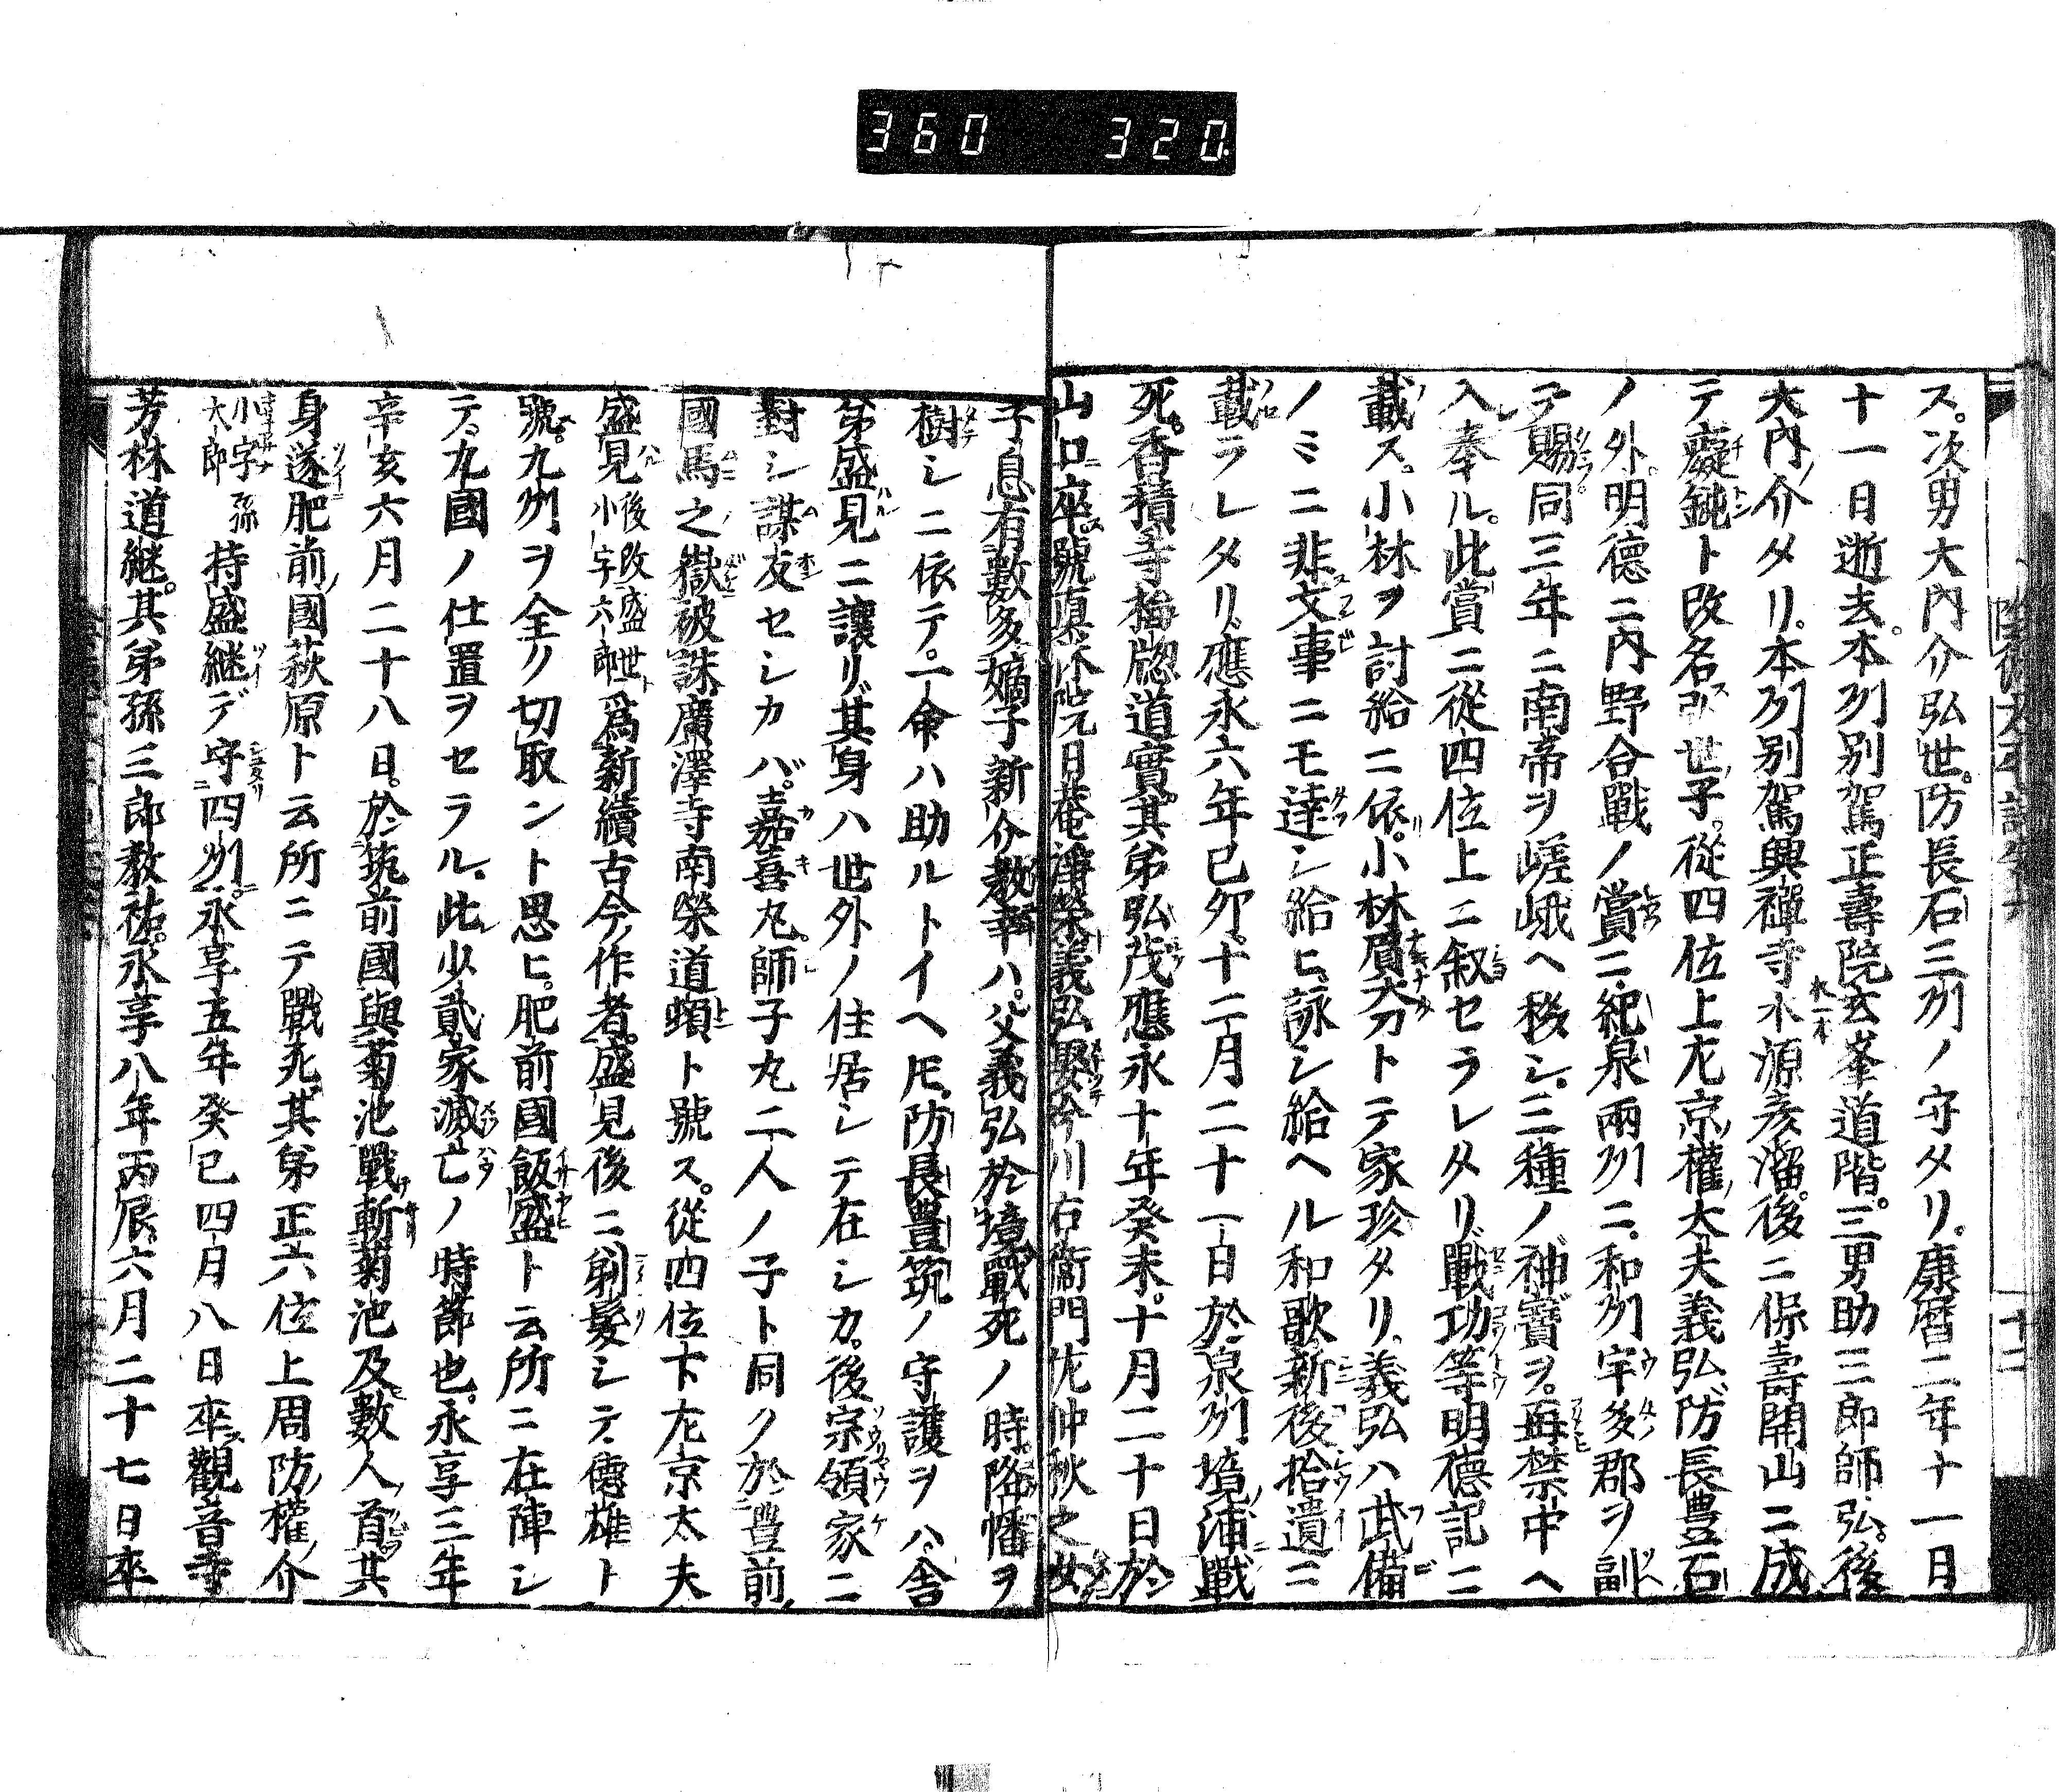 360 320
ス。次男大内介弘世。防長石三州ノ守タリ。康暦二年十一月
十一日逝去。本州別駕正壽院玄峯道階。三男助三郎師弘。後
大内介タリ。本州別駕興禪寺水源彦溜。後ニ保壽開山ニ成
テ癡鈍ト改名ス。弘世ノ子。從四位上左京權大夫義弘。防長豊石
ノ外。明德ニ内野合戰ノ賞ニ紀泉兩州ニ。和州宇多郡ヲ副
テ賜。同三年ニ南帝ヲ嵯峨ヘ移シ。三種ノ神寶ヲ。再禁中ヘ
入奉ル。此賞ニ從四位上ニ叙セラレタリ。戰功等明德記ニ
載ス。小林ヲ討給ニ依。小林屓大刀トテ家珍タリ。義弘ハ武備
ノミニ非。文事ニモ達シ給ヒ。詠シ給ヘル和歌新後拾遺ニ
載ラレタリ。應永六年己卯。十二月二十一日於泉州境浦戰
死。香積寺梅牕道實。其弟弘茂應永十年癸未。十月二十日於
山口卒。號眞休院月菴淨榮。義弘娶今川右衞門佐仲秋之女
子息有數多。嫡子新介教幸ハ。父義弘於境戰死ノ時。降幡ヲ
樹シニ依テ。一命ハ助ルトイヘ𪜈。防長豊筑ノ守護ヲハ。舎
弟盛見ニ讓リ。其身ハ世外ノ住居シテ在シカ。後宗領家ニ
對シ謀反セシカハ。嘉喜丸。師子丸二人ノ子ト同ク於豊前
國馬之嶽被誅。廣澤寺南榮道頓ト號ス。從四位下左京太夫
盛見後改盛世小字六郎爲新續古今ノ作者。盛見後ニ剃髮シテ德雄ト
號。九州ヲ全ク切取ント思ヒ。肥前國飯盛ト云所ニ在陣シ
テ。九國ノ仕置ヲセラル。此少貳家滅亡ノ時節也。永享三年
辛亥六月二十八日。於筑前國與菊池戰。斬菊池及數人首。其
身遂肥前ノ國萩原ト云所ニテ戰死。其弟正六位上周防ノ權介
小字孫太郎持盛継デ守四州。永享五年癸巳四月八日卒。觀音寺
芳林道継。其弟孫三郎教祐。永享八年丙辰六月二十七日卒